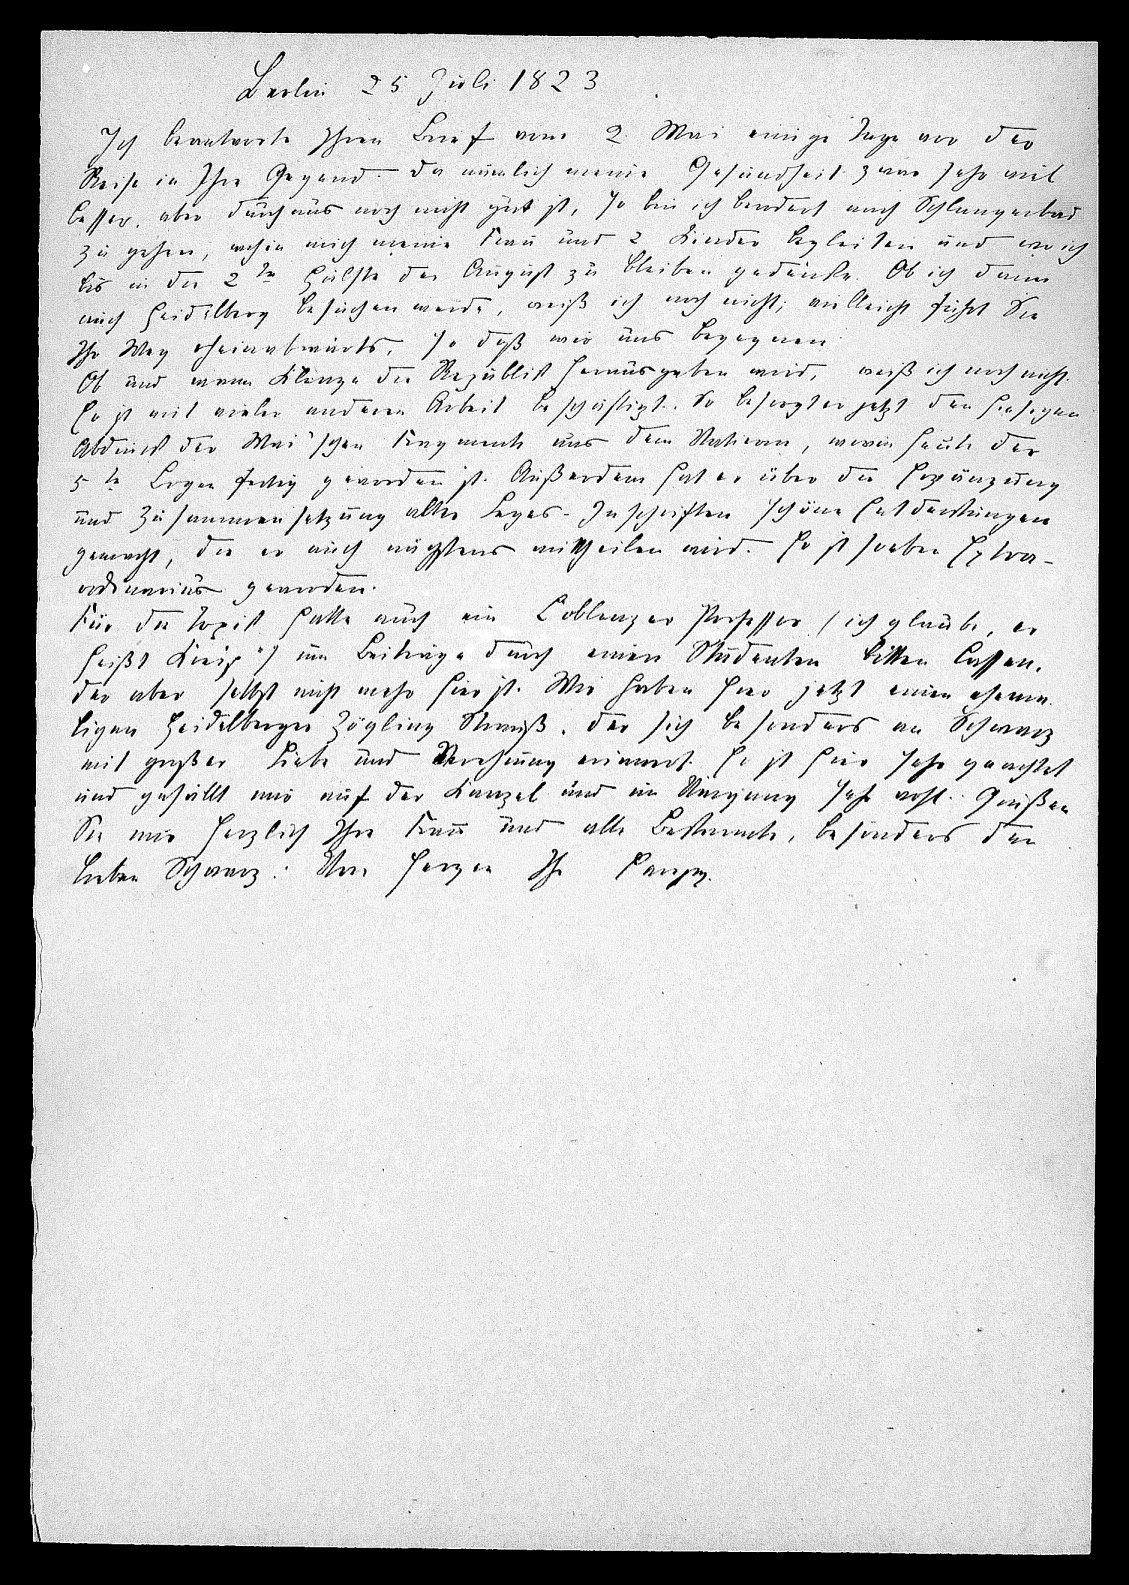 Berlin 25 Juli 1823
Ich beantworte Ihren Brief vom 2. Mai einige Tage vor der
Reise in Ihre Gegend. Da nämlich meine Gesundheit zwar sehr viel
besser, aber durchaus noch nicht gut ist, so bin ich beordert nach Schlangenbad
zu gehen, wohin mich meine Frau und 2 Kinder begleiten und wo ich
bis in die 2te Hälfte des August zu bleiben gedenke. Ob ich dann
auch Heidelberg besuchen werde, weiß ich noch nicht; vielleicht führt Sie
Ihr Weg rheinabwärts, so daß wir uns begegnen
Ob und wann Klenze die Republik herausgeben wird, weiß ich noch nicht.
Er ist mit vieler anderen Arbeit beschäftigt. So besorgt er jetzt den hiesigen
Abdruck der Mai'schen Fragmente aus dem Vatican, wovon heute der
5te Bogen fertig geworden ist. Außerdem hat er über die Ergänzung
und Zusammensetzung alter Leges-Inschriften schöne Entdeckungen
gemacht, die er auch nächstens mittheilen wird. Er ist soeben Extra-
ordinarius geworden.
Für die Topik hatte auch ein Coblenzer Professor (ich glaube, er
heißt) um Beiträge durch einen Studenten bitten lassen,
der aber selbst nicht mehr hier ist. Wir haben hier jetzt einen ehema
ligen Heidelberger Zögling Strauß, der sich besonders an Schwarz
mit großer Liebe und Verehrung erinnert. Er ist hier sehr geachtet
und gefällt mir auf der Kanzel und im Umgang sehr wohl. Grüßen
Sie mir herzlich Ihre Frau und alle Bekannte, besonders den
lieben Schwarz. Von Herzen Ihr